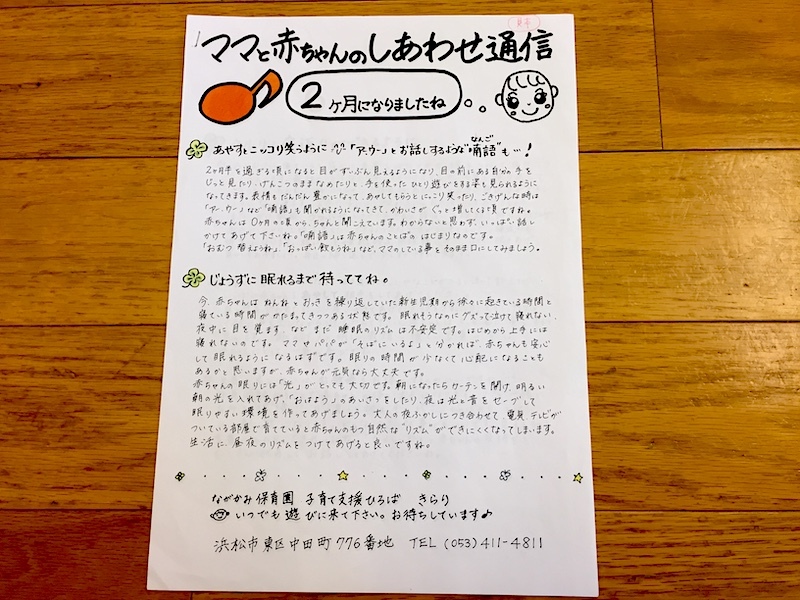 見本
ママと赤ちゃんのしあわせ通信
2ヶ月になりましたね
なんご
あやすとニッコリ笑うように 「アーウー」とお話しするような"喃語"も…!
2ヶ月半を過ぎる頃になると目がずいぶん見えるようになり、目の前にある自分の手を
じっと見たり、げんこつのままなめたりと、手を使ったひとり遊びをする姿も見られるように
なってきます。表情もだんだん豊かになって、あやしてもらうとにっこり笑ったり、ごきげんな時は
「アー、ウー」など「喃語」も聞かれるようになってきて、かわいさがぐっと増してくる頃ですね。
赤ちゃんは0ヶ月の頃から、ちゃんと聞こえています。わからないと思わず、いっぱい話し
かけてあげて下さいね。「喃語」は赤ちゃんのことばのはじまりなのです。
「おむつ替えようね」「おっぱい飲もうね」など、ママのしている事をそのまま口にしてみましょう。
じょうずに眠れるまで待っててね。
今、赤ちゃんはねんねとおっきを繰り返していた新生児期から徐々に起きている時間と
寝ている時間がかたまってきつつある状態です。眠れそうなのにグズって泣けて寝れない、
夜中に目を覚ます、などまだ睡眠のリズムは不安定です。はじめから上手には
寝れないのです。ママやパパが「そばにいるよ」と分かれば、赤ちゃんも安心
して眠れるようになるはずです。眠りの時間が少なくて心配になることも
あるかと思いますが、赤ちゃんが元気なら大丈夫です。
赤ちゃんの眠りには「光」がとっても大切です。朝になったらカーテンを開け、明るい
朝の光を入れてあげ、「おはよう」のあいさつをしたり、夜は光と音をセーブして
眠りやすい環境を作ってあげましょう。大人の夜ふかしにつき合わせて、電気、テレビが
ついている部屋で育てていると赤ちゃんのもつ自然な"リズム"ができにくくなってしまいます。
生活に、昼夜のリズムをつけてあげると良いですね。
ながかみ保育園 子育て支援ひろば きらり
いつでも遊びに来て下さい。お待ちしています♪
浜松市東区中田町776番地 TEL (053)411-4811